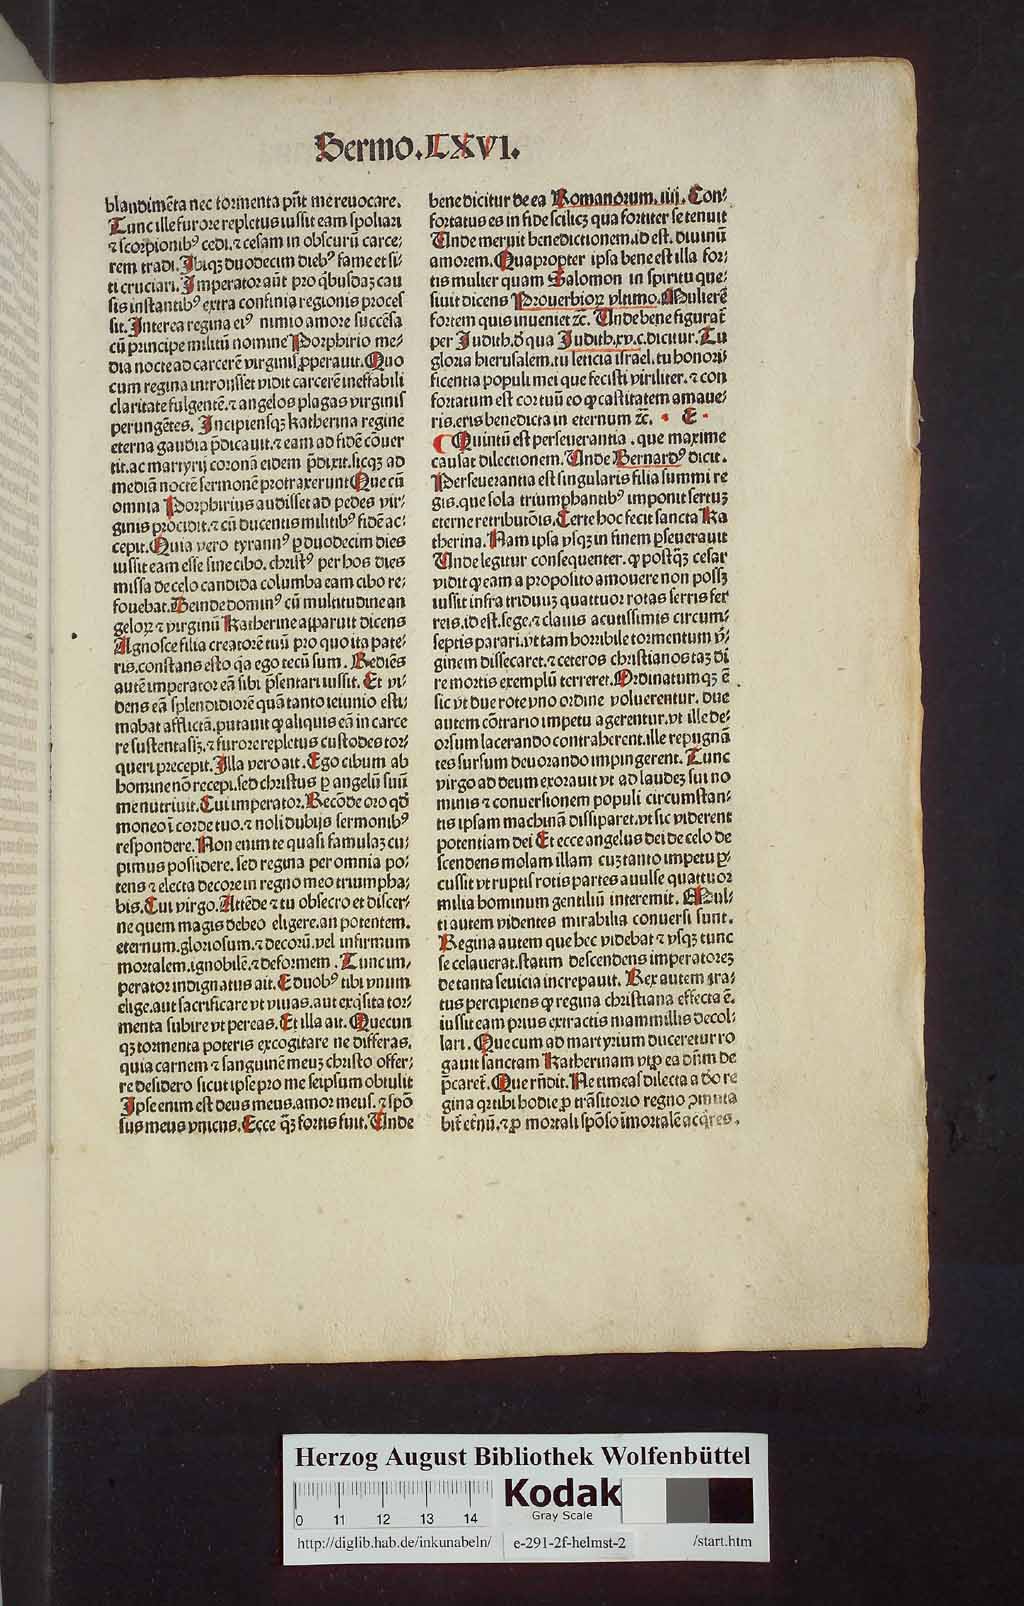 Sermo.LXVI.
blandimēta nec tormenta pn̄t me reuocare.
Tunc ille furore repletus iussit eam spoliari
⁊ scorpionibꝰ cedi.⁊ cesam in obscurū carce⸗
rem tradi. Ibiqꝫ duodecim diebꝰ fame et si⸗
ti cruciari. Imperator aūt pro qͥbusdaꝫ cau
sis instantibꝰ extra confinia regionis proces
sit. Interea regina eiꝰ nimio amore succēsa
cū principe militū nomine Porphirio me⸗
dia nocte ad carcerē virginis ꝓperauit. Quo
cum regina introisset vidit carcerē ineffabili
claritate fulgentē.⁊ angelos plagas virginis
perungētes. Incipiensqꝫ katherina regine
eterna gaudia p̄dicauit.⁊ eam ad fidē cōuer
tit.ac martyrij coronā eidem p̄dixit.sicqꝫ ad
mediā noctē sermonē protraxerunt Que cū
omnia Porphirius audisset ad pedes vir⸗
ginis procidit.⁊ cū ducentis militibꝰ fidē ac⸗
cepit. Quia vero tyrannꝰ ꝑ duodecim dies
iussit eam esse sine cibo. christꝰ per hos dies
missa de celo candida columba eam cibo re⸗
fouebat. Deinde dominꝰ cū multitudine an
geloꝝ ⁊ virginū Katherine apparuit dicens
Agnosce filia creatorē tuū pro quo ita pate⸗
ris.constans esto qͣ ego tecū sum. Rediēs
autē imperator eā sibi p̄sentari iussit. Et vi⸗
dens eā splendidiorē quā tanto ieiunio esti⸗
mabat afflictā.putauit ꝙ aliquis eā in carce
re sustentasꝫ.⁊ furore repletus custodes tor⸗
queri precepit. Illa vero ait. Ego cibum ab
homine nō recepi.sed christus ꝑ angelū suū
me nutriuit. Cui imperator. Recōde oro qđ
moneo ī corde tuo.⁊ noli dubijs sermonibꝰ
respondere. Non enim te quasi famulaꝫ cu⸗
pimus possidere. sed regina per omnia po⸗
tens ⁊ electa decore in regno meo triumpha⸗
bis. Cui virgo. Attēde ⁊ tu obsecro et discer⸗
ne quem magis debeo eligere.an potentem.
eternum.gloriosum.⁊ decorū.vel infirmum
mortalem.ignobilē.⁊ deformem. Tunc im⸗
perator indignatus ait. E duobꝰ tibi vnum
elige.aut sacrificare vt viuas.aut exqͥsita tor⸗
menta subire vt pereas. Et illa ait. Quecun
qꝫ tormenta poteris excogitare ne differas.
quia carnem ⁊ sanguinē meuꝫ christo offer⸗
re desidero sicut ipse pro me seipsum obtulit
Ipse enim est deus meus.amor meus.⁊ spō
sus meus vnicus. Ecce qͣꝫ fortis fuit. Unde
bene dicitur de ea Romanorum.iiij. Con⸗
fortatus es in fide scilicꝫ qua fortiter se tenuit
Unde meruit benedictionem.id est. diuinū
amorem. Quapropter ipsa bene est illa for⸗
tis mulier quam Salomon in spiritu que⸗
siuit dicens Prouerbioꝝ vltimo. Mulierē
fortem quis inueniet ⁊c̄. Unde bene figurat̄
per Judith.d̄ qua Judith.xv.c.dicitur. Tu
gloria hierusalem.tu leticia israel.tu honori⸗
ficentia populi mei que fecisti viriliter.⁊ con
fortatum est cor tuū eo ꝙ castitatem amaue⸗
ris.eris benedicta in eternum ⁊c̄. E
Quintū est perseuerantia. que maxime
causat dilectionem. Unde Bernardꝰ dicit.
Perseuerantia est singularis filia summi re
gis.que sola triumphantibꝰ imponit sertuꝫ
eterne retributōis. Certe hoc fecit sancta Ka
therina. Nam ipsa vsqꝫ in finem ꝑseuerauit
Unde legitur consequenter. ꝙ postqͣꝫ cesar
vidit ꝙ eam a proposito amouere non possꝫ
iussit infra triduuꝫ quattuor rotas serris fer
reis.id est.sege.⁊ clauis acutissimis circum⸗
septis parari.vt tam horribile tormentum v̓⸗
ginem dissecaret.⁊ ceteros christianos taꝫ di̓
re mortis exemplū terreret. Ordinatumqꝫ ē
sic vt due rote vno ordine voluerentur. due
autem cōtrario impetu agerentur.vt ille de⸗
orsum lacerando contraherent.ille repugnā
tes sursum deuorando impingerent. Tunc
virgo ad deum exorauit vt ad laudeꝫ sui no
minis ⁊ conuersionem populi circumstan⸗
tis ipsam machinā dissiparet.vt sic viderent
potentiam dei Et ecce angelus dei de celo de
scendens molam illam cuꝫ tanto impetu ꝑ⸗
cussit vt ruptis rotis partes auulse quattuor
milia hominum gentiliū interemit. Mul⸗
ti autem videntes mirabilia conuersi sunt.
Regina autem que hec videbat ⁊ vsqꝫ tunc
se celauerat.statim descendens imperatoreꝫ
de tanta seuicia increpauit. Rex autem ira⸗
tus percipiens ꝙ regina christiana effecta ē.
iussit eam prius extractis mammillis decol⸗
lari. Que cum ad martyrium duceretur ro
gauit sanctam Katherinam vt ꝓ ea dn̄m de
p̄caret̄. Que rn̄dit. Ne timeas dilecta a deo re
gina qꝛ tibi hodie ꝓ trāsitorio regno ꝯmuta
bit̄ et̓nū.⁊ ꝓ mortali spōso īmortalē acqͥres.
Herzog August Bibliothek Wolfenbüttel
0 11 12 13 14
Kodak
Gray Scale
http://diglib.hab.de/inkunabeln/ e-291-2f-helmst-2 /start.htm